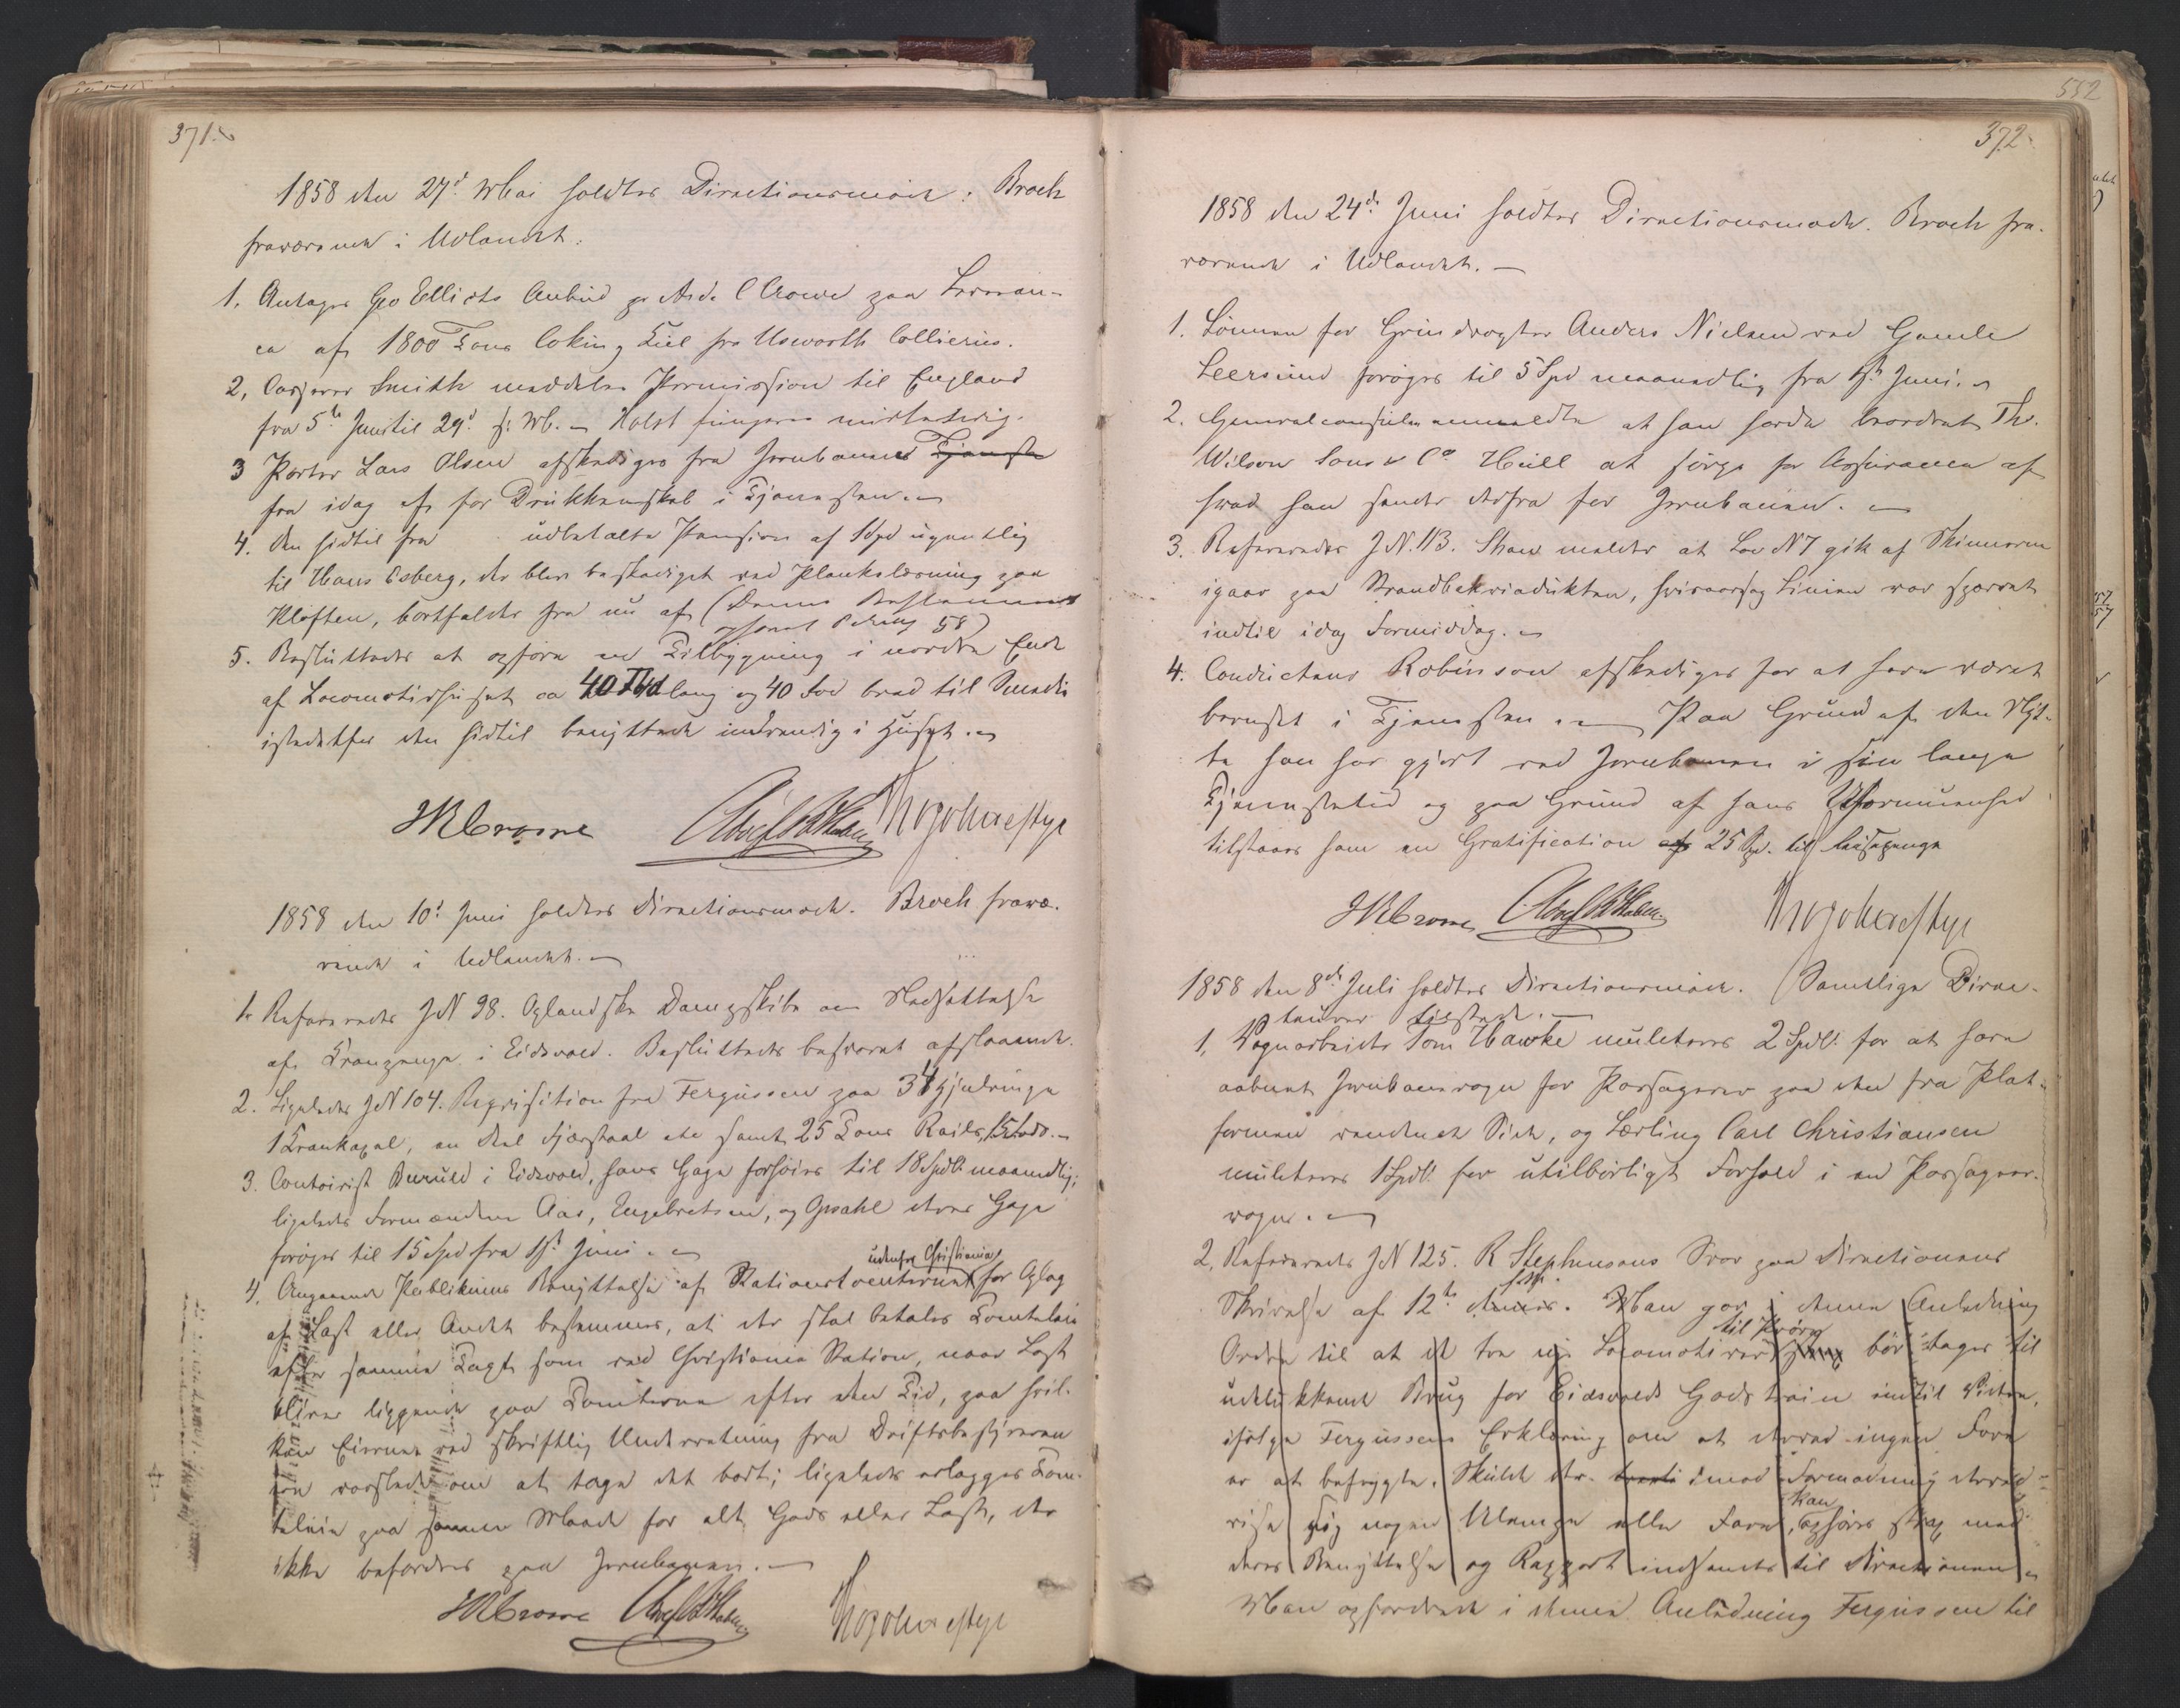 371.
1858 den 27d Mai holdtes Directionsmøde: Broch
fraværende i Udlandet.
1. Antages Geo Elliots Anbud pr Aide C Crowe paa Leveran-
ce af 1800 Tons Coking Kul fra Usworth Collieries.
2, Casserer Smith meddeles Permission til England
fra 5te Juni til 29d s: M. – Holst fungerer midlertidig.
3 Porter Lars Olsen afskediges fra Jernbanens Tjeneste
fra idag af for Drukkenskab i Tjenesten. –
4. Den hidtil fra udbetalte Pension af 1 Spd ugentlig
til Hans Esberg, der blev beskadiget ved Plankelæsning paa
Kløften, bortfalder fra nu af (Denne Bestemmelse
ophævet 58)
5. Besluttedes at opføre en Tilbygning i nordre Ende
af Locomotivhuset ca 40 Fod lang og 40 Fod bred til Smedie
istedetfor den hidtil benyttede indvendig i Huset. –
JRCrowe
1858 den 10d Juni holdtes Directionsmøde. Broch fravæ-
rende i Udlandet. –
1. Refereredes JN 98. Oplandske Dampskibe om Nedsættelse
af Kranpenge i Eidsvold. Besluttedes besvaret afslaaende.
2. Ligeledes JN 104. Reqvisition fra Fergusson paa 34 Hjulringe
1 Krankapal, en Deel Fjærstaal etc samt 25 Tons Rails,
3. Contoirist Buruld i Eidsvold, hans Gage forhøies til 18 Spdl maanedlig;
ligeledes Formændene Aas, Engebretsen, og Opsahl deres Gage
forøges til 15 Spd fra 1ste Juni. –
udenfor Christiania
4. Angaaende Publikums Benyttelse af Stationstomterne for Oplag
af Last eller Andet bestemmes, at der skal betales Tomteleie
efter samme Taxt som ved Christiania Station, naar Last
bliver liggende paa Tomterne efter den Tid, paa hvil-
ken Eierne ved skriftlig Underretning fra Driftsbestyreren
ere varslede om at tage det bort; ligeledes erlægges Tom-
teleie paa samme Maade for alt Gods eller Last, der
ikke befordres paa Jernbanen. –
JRCrowe
552
372.
1858 den 24de Juni holdtes Directionsmøde. Broch fra-
værende i Udlandet. –
1. Lønnen for Grindvogter Anders Nielsen ved Gamle
Leersund forøges til 5 Spd maanedlig fra 1ste Juni. –
2. Generalconsulen anmeldte at han havde beordret Th.
Wilson Sons & Co Hull at sørge for Assurancen af
hvad han sender derfra for Jernbanen. –
3. Refereredes JN. 113. Shaw melder at Loc N 7 gik af Skinnerne
igaar paa Strandbekviadukten, hvisaarsag Linien var spærret
indtil idag Formiddag. –
4. Conducteur Robinson afskediges for at have været
beruset i Tjenesten. – Paa Grund af den Nyt-
te han har gjort ved Jernbanen i sin lange
Tjenestetid og paa Grund af hans Uformuenhed
tilstaaes ham en Gratification af 25 Spd. til Reisepenge
JRCrowe
1858 den 8de Juli holdtes Directionsmøde. Samtlige Direc-
teurer tilstede. –
1, Vognarbeider Tom Hawke mulcteres 2 Spdl. for at have
aabnet Jernbanevogn for Passagerer paa den fra Plat-
formen vendende Side, og Lærling Carl Christiansen
mulcteres 1 Spdl for utilbørligt Forhold i en Passageer-
vogn. –
2, Refereredes JN 125. R Stephensons Svar paa Directionens
Skrivelse af 12te . Man gav i denne Anledning
til Prøve
Ordre til at de tre nye Locomotiver bør tages til
udelukkende Brug for Eidsvolds Godstrain indtil Videre,
ifølge Fergussons Erklæring om at derved ingen Fare
er at befrygte. Skulde der imod Formodning derved
kan
vise sig nogen Ulempe eller Fare, ophøres strax med
deres Benyttelse og Rapport indsendes til Directionen. –
Man opfordrede i denne Anledning Fergusson til